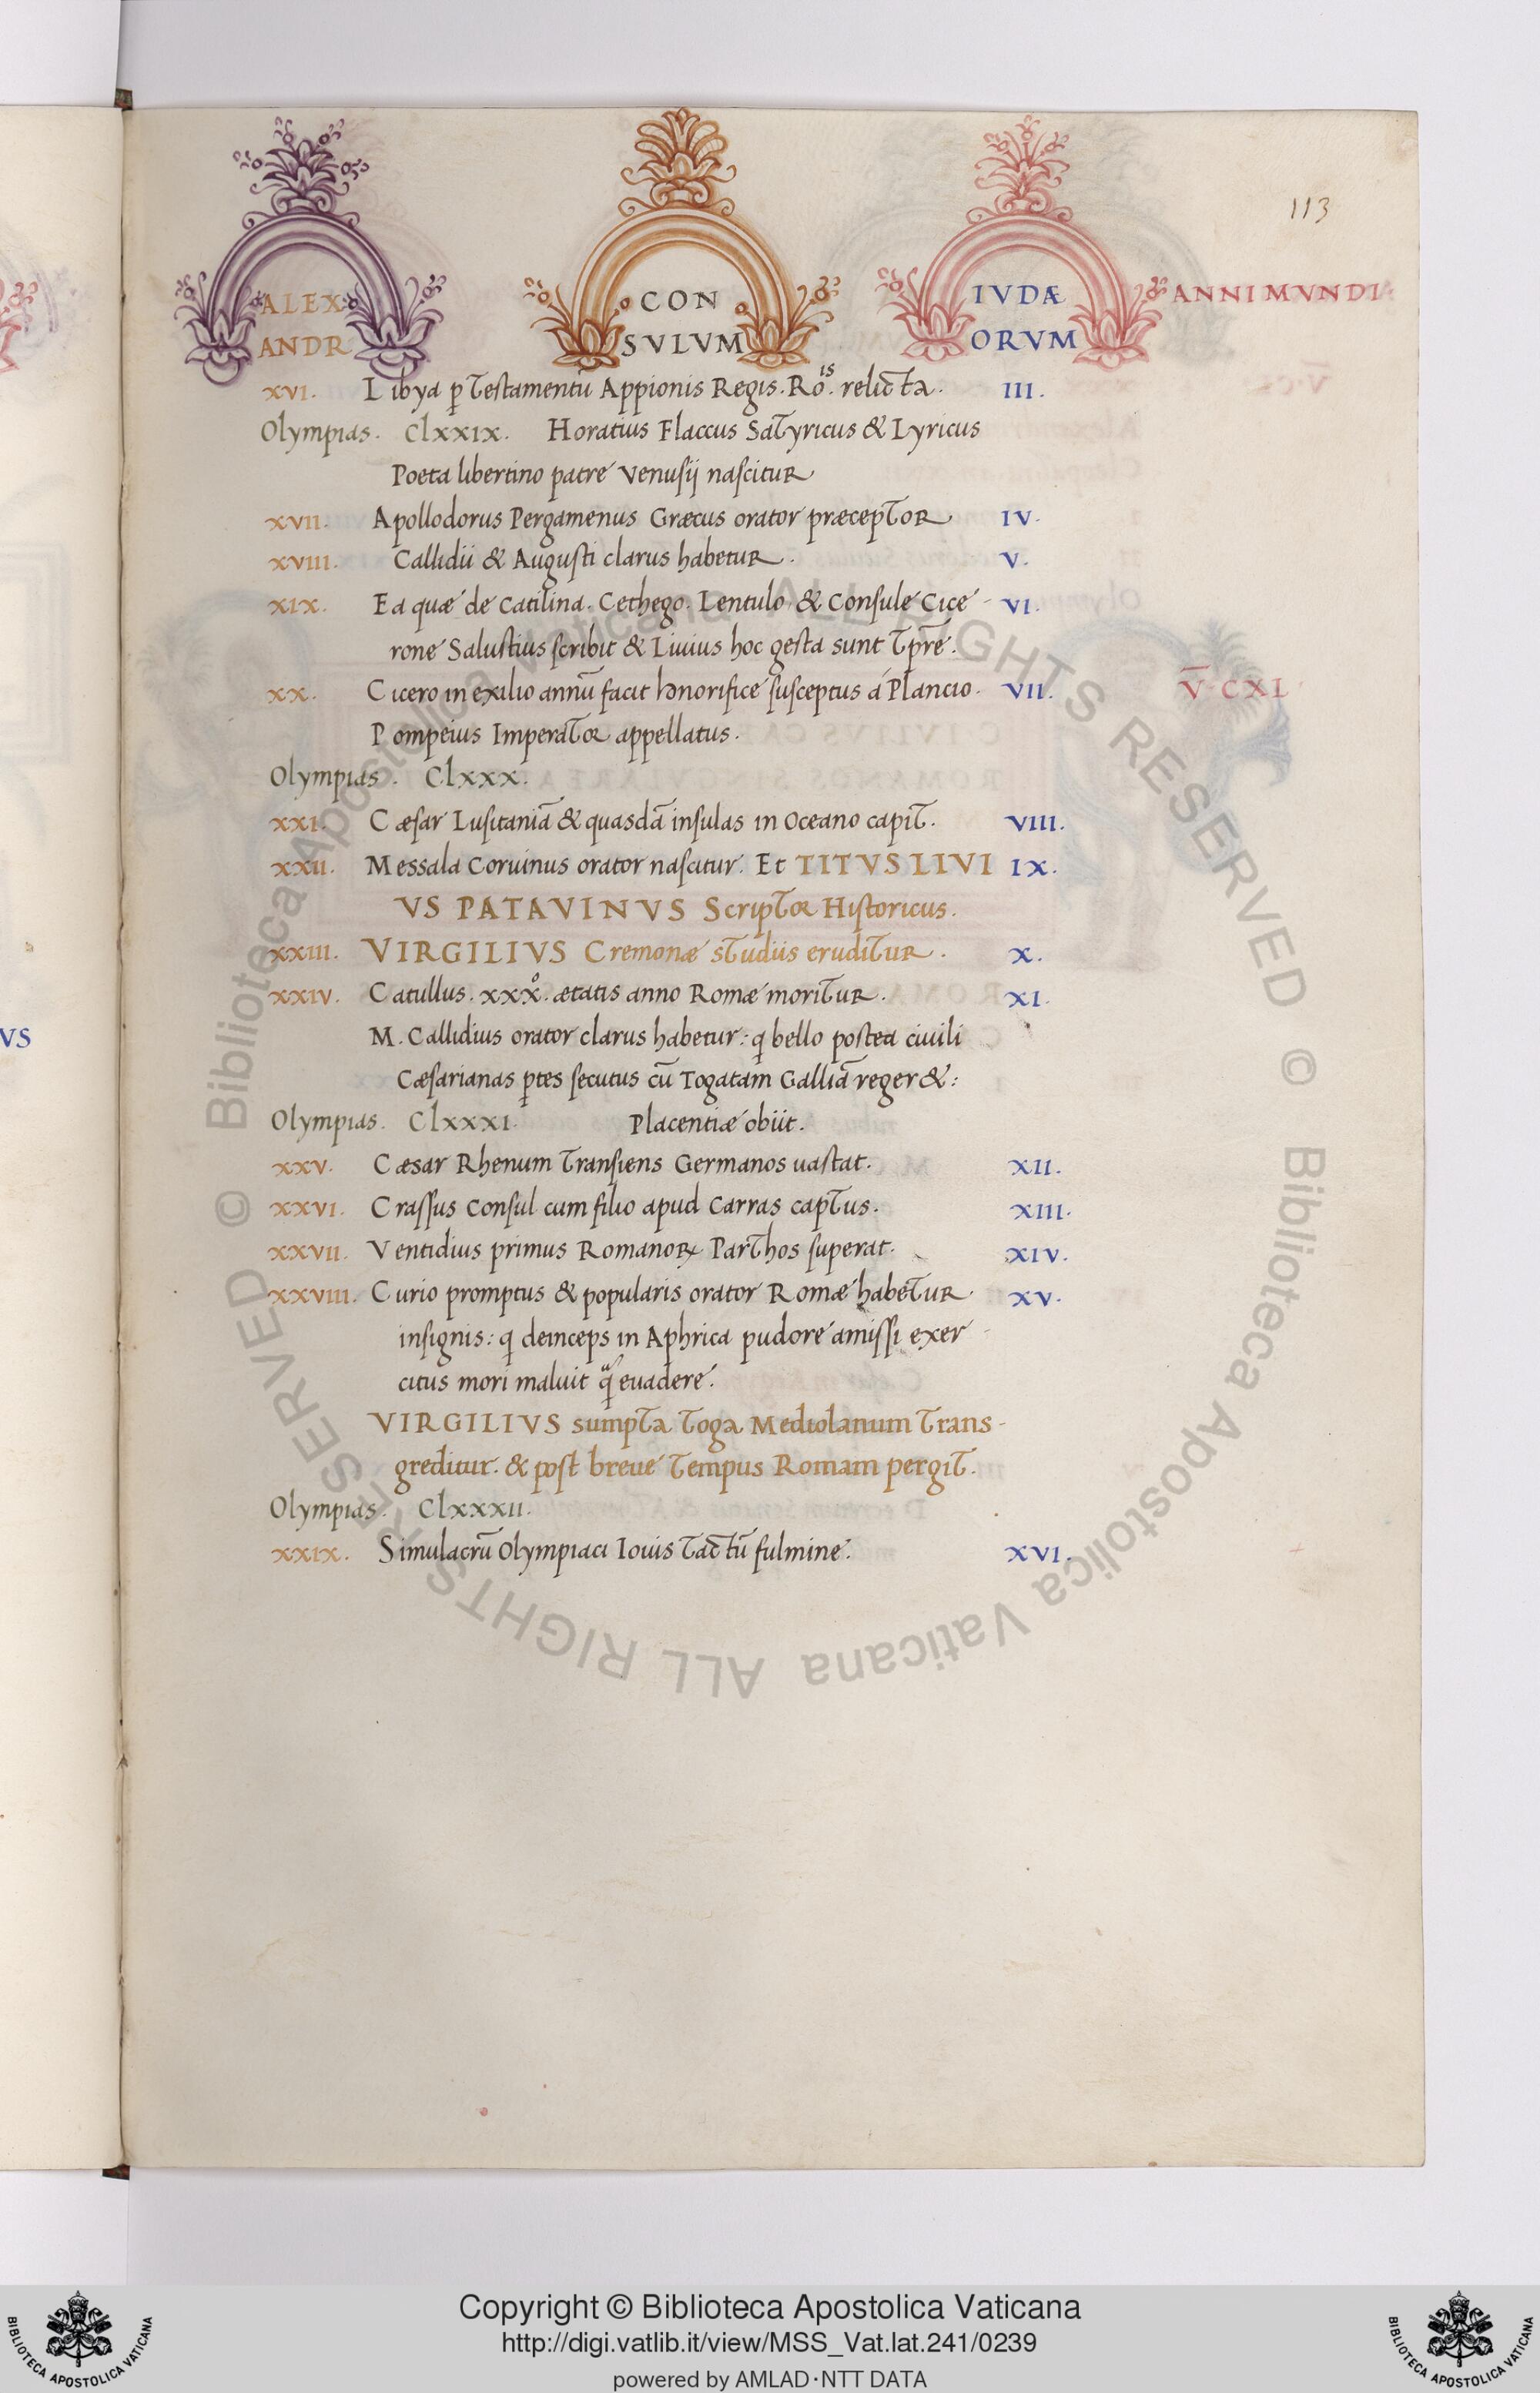 113
ALEX CON IVDÆ ANNI MVNDI
ANDR SVLVM ORVM
XVI. Libya p̱ Testamentū Appionis Regis. Rō.is relicta. III.
Olympias. Clxxix. Horatius Flaccus Satyricus & Lyricus
Poeta libertino patre venusij nascitur
XVII. Apollodorus Pergamenus Græcus orator præceptor IV.
XVIII. Callidii & Augusti clarus habetur. V.
XIX. Ea quæ de Catilina. Cethego. Lentulo. & Consule Cice- VI.
rone Salustius scribit & Liuius hoc gesta sunt tp̄re.
XX. Cicero in exilio annū facit honorifice susceptus á Plancio. VII. V̄ CXL
Pompeius Imperator appellatus.
Olympias. Clxxx.
XXI. Cæsar Lusitaniā & quasdā insulas in Oceano capit. VIII.
XXII. Messala Coruinus orator nascitur. Et TITVS LIVI IX.
VS PATAVINVS Scriptor Historicus.
XXIII. VIRGILIVS Cremonæ studiis eruditur. X.
XXIV. Catullus. xxxº. ætatis anno Romæ moritur. XI.
M. Callidius orator clarus habetur: q bello postea ciuili
Cæsarianas p̱tes secutus cū Togatam Galliā reger&:
Olympias. Clxxxi. Placentiæ obiit.
XXV. Cæsar Rhenum transiens Germanos uastat. XII.
XXVI. Crassus Consul cum filio apud Carras captus. XIII.
XXVII. Ventidius primus Romanoꝝ Parthos superat. XIV.
XXVIII. Curio promptus & popularis orator Romæ habetur XV.
insignis: q deinceps in Aphrica pudore amissi exer-
citus mori maluit q̃ euadere.
VIRGILIVS sumpta toga Mediolanum trans-
greditur. & post breue tempus Romam pergit.
Olympias. Clxxxii.
XXIX. Simulacrū Olympiaci Iouis tactū fulmine. XVI.
VS
© Biblioteca Apostolica Vaticana ALL RIGHTS RESERVED © Biblioteca Apostolica Vaticana ALL RIGHTS RESERVED
Copyright © Biblioteca Apostolica Vaticana
http://digi.vatlib.it/view/MSS_Vat.lat.241/0239
powered by AMLAD·NTT DATA
BIBLIOTECA APOSTOLICA VATICANA
BIBLIOTECA APOSTOLICA VATICANA